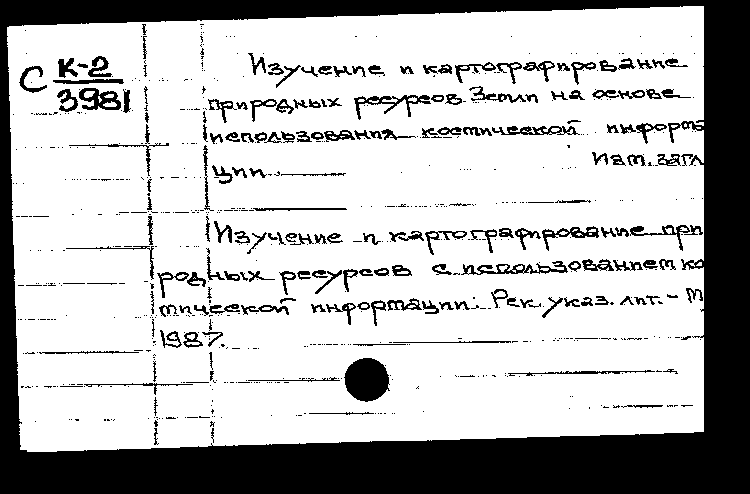 С К-2
3981
Изучение и картографирование
природных ресурсов Земли на основе
использования космической информа
ции. Изм. загл
Изучение и картографирование при
родных ресурсов с использованием ко
мической информации: Рек. указ. лит. - М
1987.